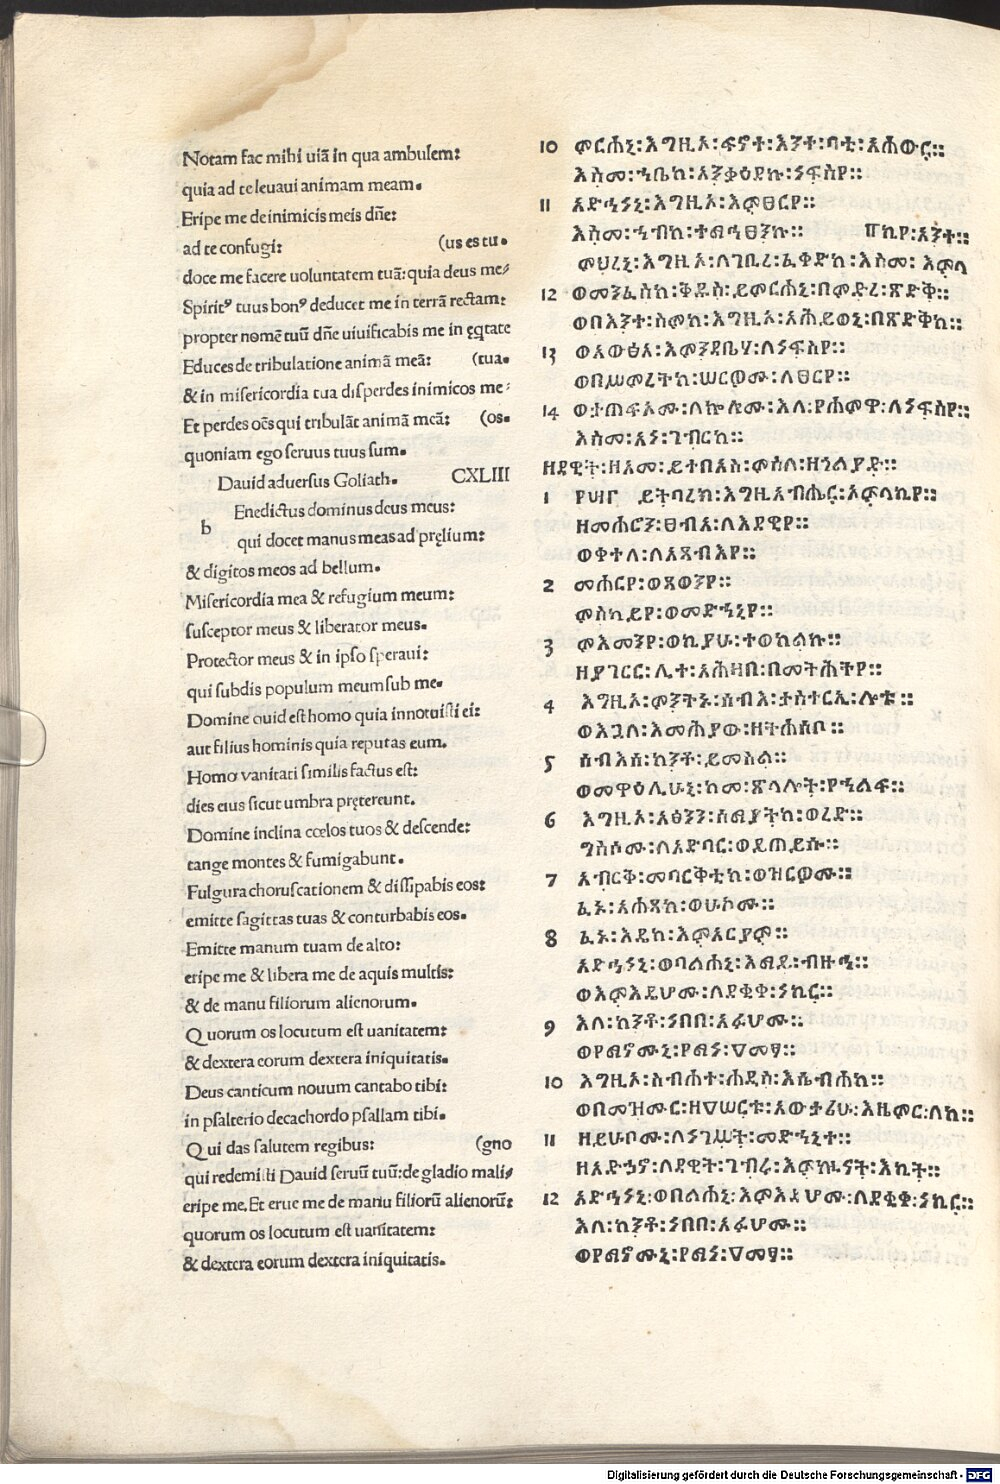 Notam fac mihi uiā in qua ambulem:
quia ad te leuaui animam meam.
Eripe me de inimicis meis dn̄e:
ad te confugi: (us es tu.
doce me facere uoluntatem tuā: quia deus me/
Spiritꝰ tuus bonꝰ deducet me in terrā rectam:
propter nomē tuū dn̄e uiuificabis me in ęq̄tate
Educes de tribulatione animā meā: (tua.
& in misericordia tua disperdes inimicos me/
Et perdes oēs qui tribulāt animā meā: (os.
quoniam ego seruus tuus sum.
Dauid aduersus Goliath. CXLIII
b Enedictus dominus deus meus:
qui docet manus meas ad pręlium:
& digitos meos ad bellum.
Misericordia mea & refugium meum:
susceptor meus & liberator meus.
Protector meus & in ipso speraui:
qui subdis populum meum sub me.
Domine quid est homo quia innotuisti ei:
aut filius hominis quia reputas eum.
Homo vanitati similis factus est:
dies eius sicut umbra prętereunt.
Domine inclina cœlos tuos & descende:
tange montes & fumigabunt.
Fulgura choruscationem & dissipabis eos:
emitte sagittas tuas & conturbabis eos.
Emitte manum tuam de alto:
eripe me & libera me de aquis multis:
& de manu filiorum alienorum.
Quorum os locutum est uanitatem:
& dextera eorum dextera iniquitatis.
Deus canticum nouum cantabo tibi:
in psalterio decachordo psallam tibi.
Qui das salutem regibus: (gno
qui redemisti Dauid seruū tuū: de gladio mali/
eripe me. Et erue me de manu filiorū alienorū:
quorum os locutum est uanitatem:
& dextera eorum dextera iniquitatis.
10 ምርሐኒ፡እግዚኦ፡ፍኖተ፡እንተ፡ባቲ፡አሐውር።
እስመ፡ኀቤከ፡አንቃዕደኩ፡ነፍስየ።
11 አድኅነኒ፡እግዚኦ፡እምፀርየ።
እስመ፡ኀብከ፡ተማኅፀንኩ። ኪየ፡አንተ።
ምህረኒ፡እግዚኦ፡ለገቢረ፡ፈቀድከ፡እስመ፡ አምላ
12 ወመንፈስከ፡ቅዱስ፡ይምርሐኒ፡በምድረ፡ጽድቅ።
ወበእንተ፡ስምከ፡እግዚኦ፡አሕይወኒ፡በጽድቅከ።
13 ወአውፅአ፡እምንዳቤሃ፡ለነፍስየ።
ወበሥምረትከ፡ሠርዎሙ፡ለፀርየ።
14 ወታጠፍኦሙ፡ለኵሎሙ፡እለ፡የሐምዋ፡ለነፍስየ።
እስመ፡አነ፡ገብርከ።
ዘዳዊት፡ዘአመ፡ይተበአስ፡ምስለ፡ዘጎልያድ።
1 ይትባረክ፡እግዚአብሔር፡አምላኪየ።
ዘመሐሮን፡ፀብአ፡ለእደዊየ።
ወቀተለ፡ለአጻብእየ።
2 መሐርየ፡ወጸወንየ።
ምስካይየ፡ወመድኀኒየ።
3 ምእመንየ፡ወኪያሁ፡ተወከልኩ።
ዘያገርር፡ሊተ፡አሕዛበ፡በመትሕትየ።
4 እግዚኦ፡ምንትኑ፡ሰብእ፡ታስተርኢ፡ሎቱ።
ወእጓለ፡እመሕያው፡ዘትሐስቦ።
5 ሰብእሰ፡ከንቶ፡ይመስል።
ወመዋዕሊሁኒ፡ከመ፡ጽላሎት፡የኀልፍ።
6 እግዚኦ፡አፅንን፡ሰማያትከ፡ወረድ።
ግስሶሙ፡ለአድባር፡ወይጠይሱ።
7 አብርቅ፡መባርቅቲከ፡ወዝርዎሙ።
ፈኑ፡አሕጻከ፡ወሁኮሙ።
8 ፈኑ፡እዴከ፡እምአርያም።
አድኅነኒ፡ወባልሐኒ፡እማይ፡ብዙኅ።
ወእምእዴሆሙ፡ለደቂቀ፡ነኪር።
9 እለ፡ከንቶ፡ነበበ፡አፉሆሙ።
ወየማኖሙኒ፡የማነ፡ዐመፃ።
10 እግዚኦ፡ስብሐተ፡ሐዲስ፡እሴብሐከ።
ወበመዝሙር፡ዘዐሠርቱ፡አውታሪሁ፡እዜምር፡ለከ።
11 ዘይሁቦሙ፡ለነገሥት፡መድኀኒተ።
ዘአድኀኖ፡ለዳዊት፡ገብሩ፡እምኲናት፡እኪት።
12 አድኅነኒ፡ወበልሐኒ፡እምእዴሆሙ፡ለደቂቀ፡ነኪር።
እለ፡ከንቶ፡ነበበ፡አፉሆሙ።
ወየማኖሙኒ፡የማነ፡ዐመፃ።
Digitalisierung gefördert durch die Deutsche Forschungsgemeinschaft - DFG